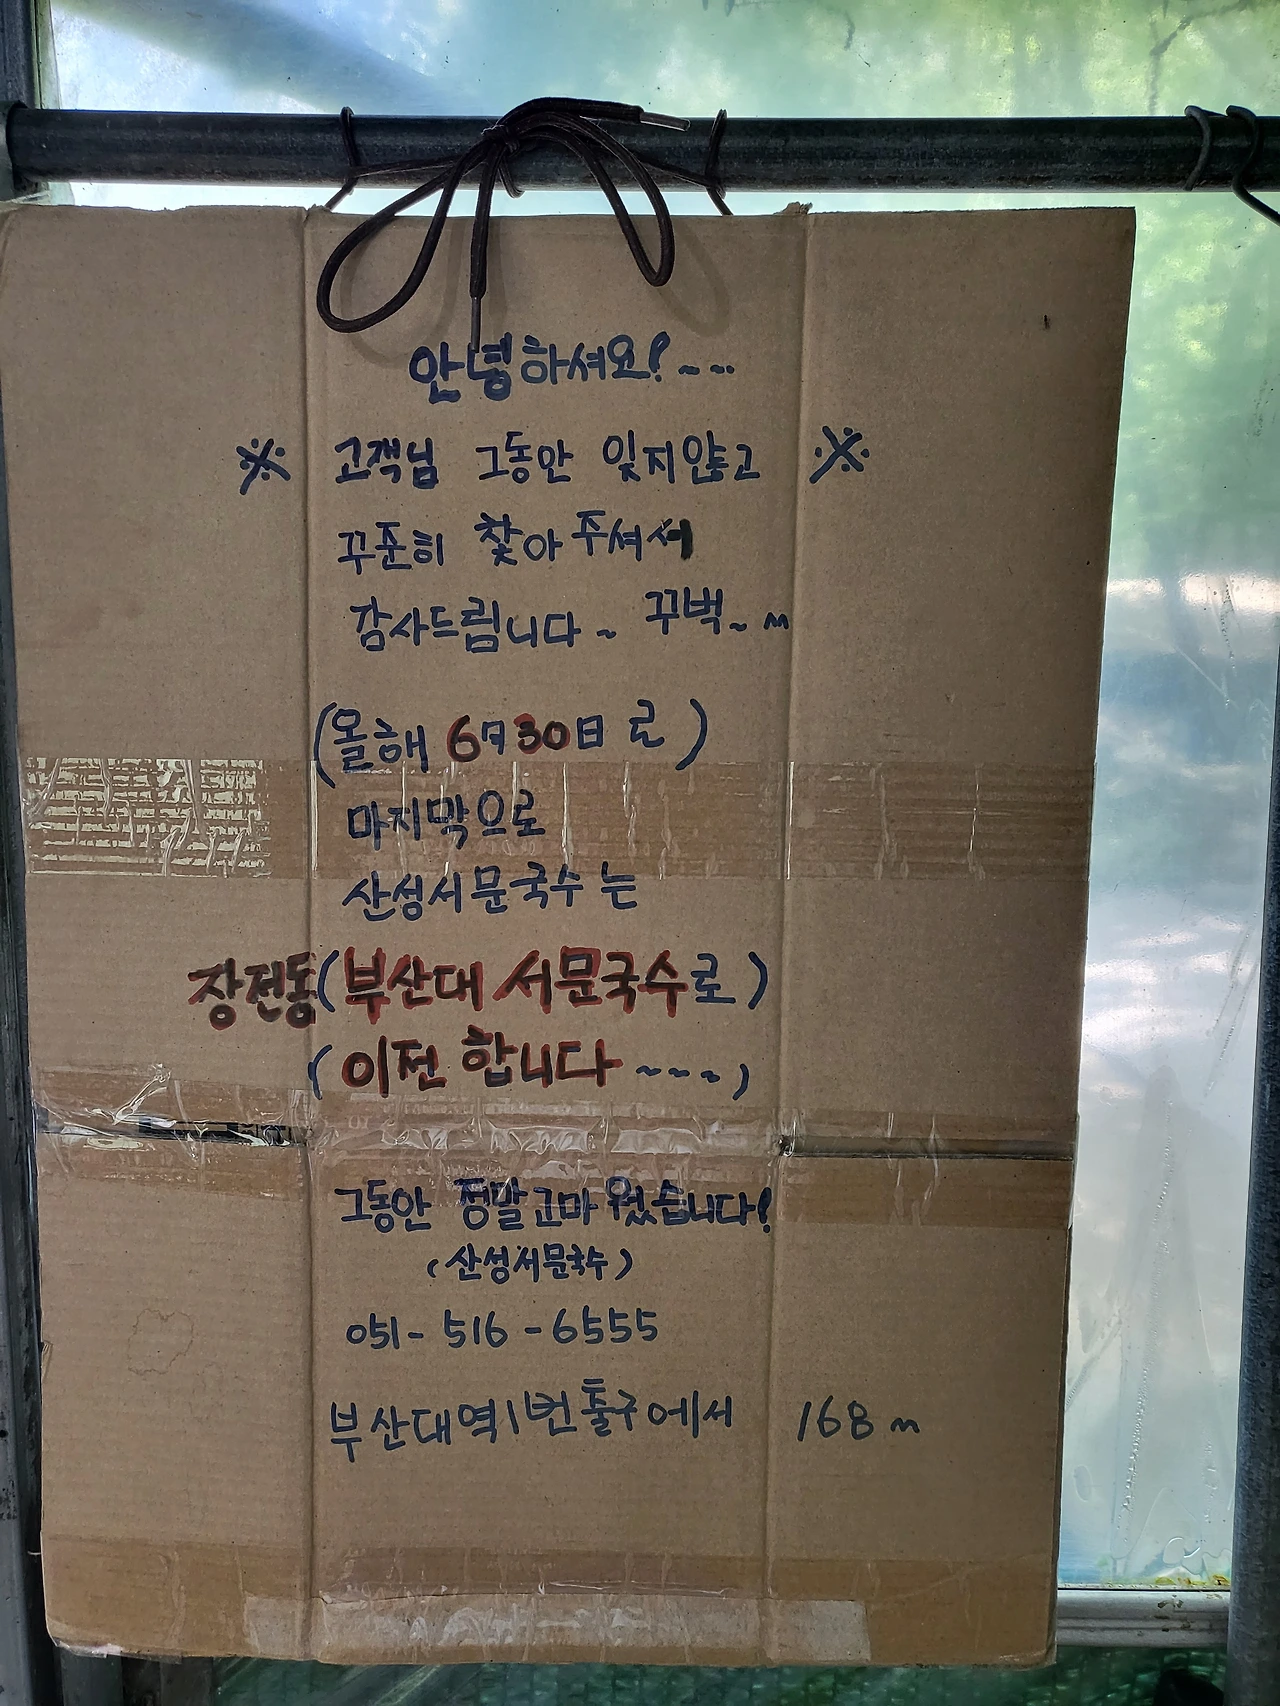 안녕하셔요!~--
※ 고객님 그동안 잊지않고 ※
꾸준히 찾아주셔서
감사드립니다~ 꾸벅~m
(올해 6月30日로)
마지막으로
산성서문국수는
장전동(부산대 서문국수로)
(이전 합니다~~~~)
그동안 정말고마웠습니다!
(산성서문국수)
051-516-6555
부산대역1번출구에서 168m